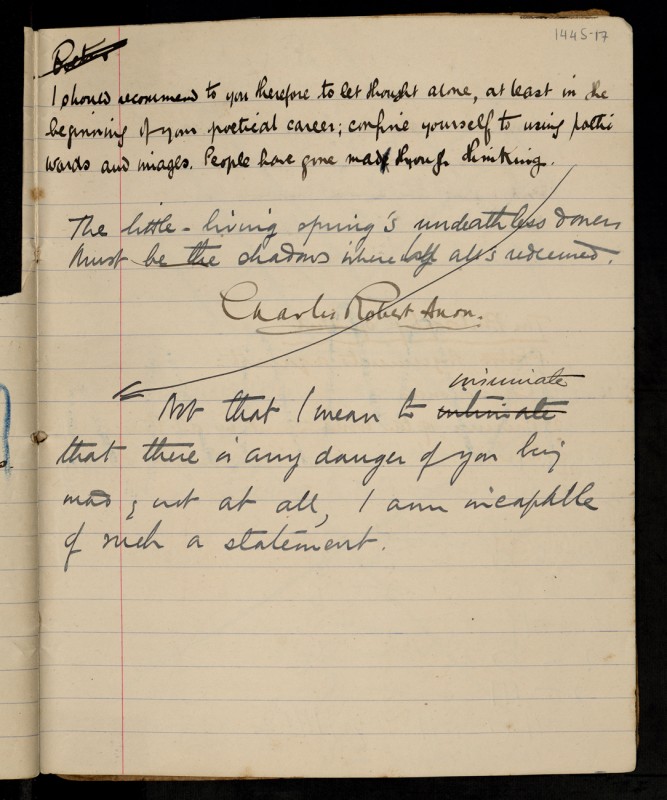 1445-17
I should recommend to you therefore to let thought alone, at least in the
beginning of your poetical career; confine yourself to using poetic
words and images. People have gone mad through thinking.
The little-living spring's undeathless
Must be the shadows where all's redeemed.
Charles Robert Anon.
insinuate
Not that I mean to intimate
that there is any danger of you being
mad; not at all, I am incapable
of such a statement.